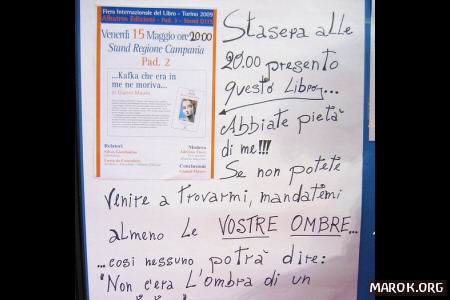 Fiera Internazionale del Libro - Torino 2009
Albatros Edizioni - Pad. 3 - Stand
Venerdì 15 Maggio ore 20:00
Stand Regione Campania
Pad. 2
...Kafka che era in
me ne moriva...
di Gianni Mauro
Relatori
Modera
Conclusioni
Gianni Mauro
Stasera alle
20.00 presento
questo Libro...
Abbiate pietà
di me!!!
Se non potete
venire a trovarmi, mandatemi
almeno le VOSTRE OMBRE...
...così nessuno potrà dire:
"Non c'era L'ombra di un
MAROK.ORG